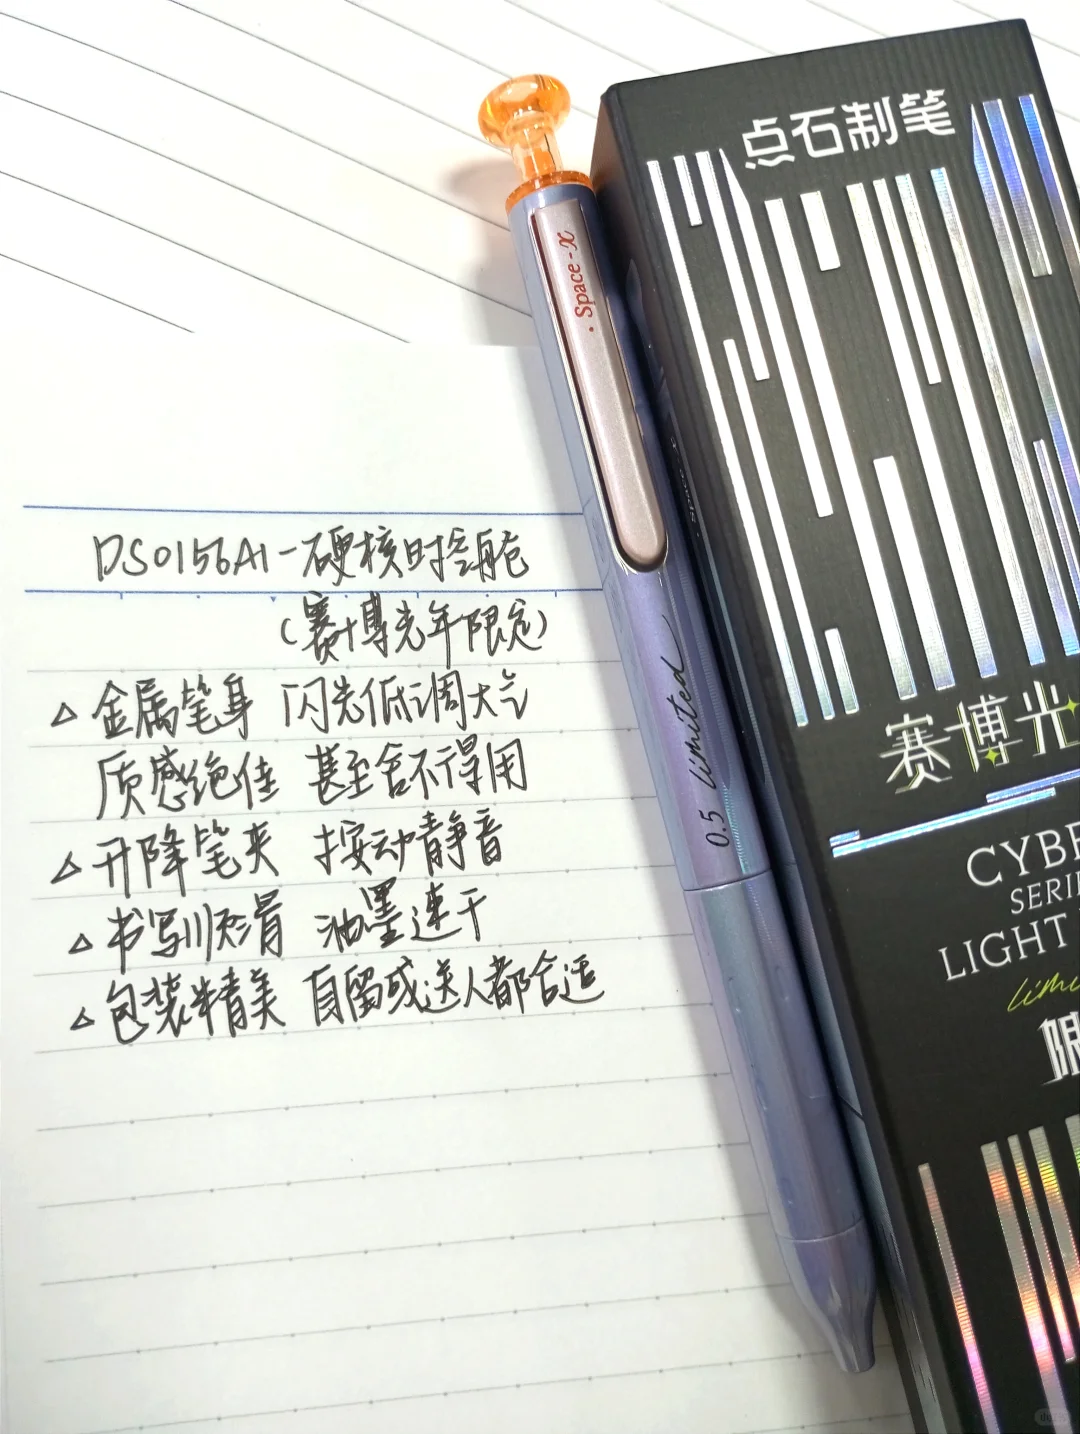 DS0156A1-硬核时空舱
(赛博光年限定)
△金属笔身 闪光低调大气
质感绝佳 甚至舍不得用
△升降笔夹 按动静音
△书写顺滑 油墨速干
△包装精美 自留或送人都合适
· Space-X
0.5 limited
点石制笔
赛博光
CYBE
SERI
LIGHT
limi
限